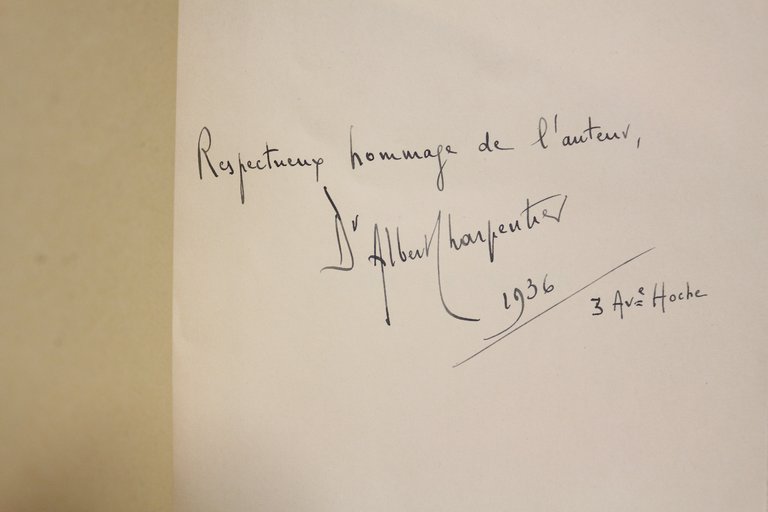 Respectueux hommage de l'auteur,
Dr Albert Charpentier
1936
3 Ave Hoche